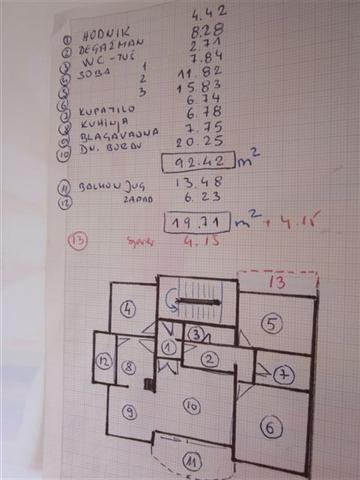 ① HODNIK 4.42
② DEGAŽMAN 8.28
③ WC-TUŠ 2.71
④ SOBA 1 7.84
⑤ 2 11.82
⑥ 3 15.83
⑦ KUPATILO 6.74
⑧ KUHINJA 6.78
⑨ BLAGAVAONA 7.75
⑩ DN. BORAV 20.25
92.42 m²
⑪ BALKON JUG 13.48
⑫ ZAPAD 6.23
19.71 m² + 4.15
⑬ sjever 4.15
13
4
5
3
1
2
12
8
7
9
10
6
11